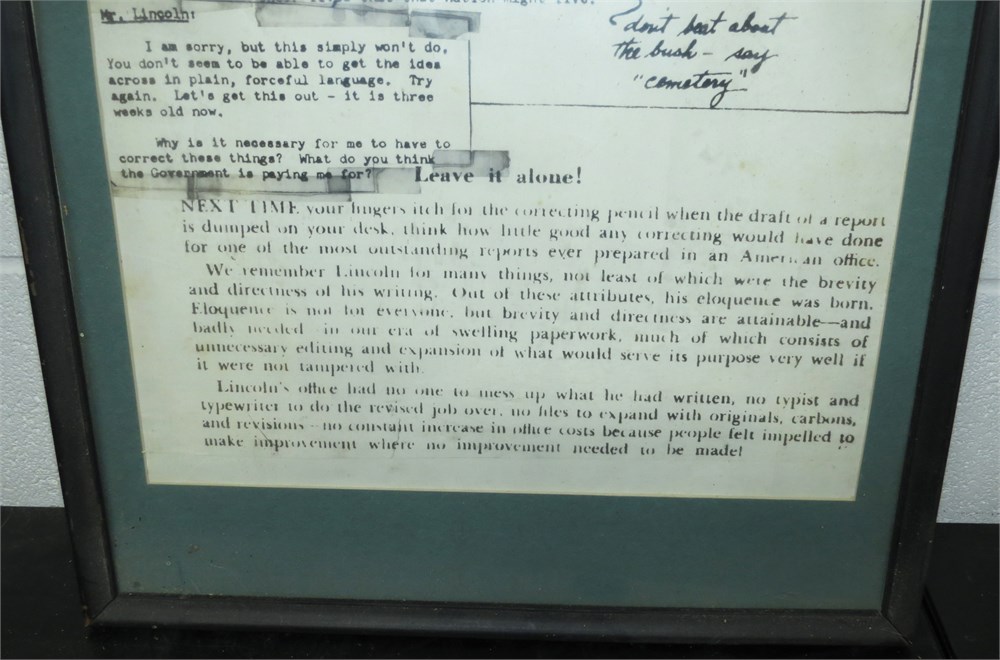 that nation might live.
Mr. Lincoln:
I am sorry, but this simply won't do.
You don't seem to be able to get the idea
across in plain, forceful language. Try
again. Let's get this out - it is three
weeks old now.
Why is it necessary for me to have to
correct these things? What do you think
the Government is paying me for?
don't beat about
the bush - say
"cemetery"
Leave it alone!
NEXT TIME your fingers itch for the correcting pencil when the draft of a report
is dumped on your desk, think how little good any correcting would have done
for one of the most outstanding reports ever prepared in an American office.
We remember Lincoln for many things, not least of which were the brevity
and directness of his writing. Out of these attributes, his eloquence was born.
Eloquence is not for everyone, but brevity and directness are attainable—and
badly needed in our era of swelling paperwork, much of which consists of
unnecessary editing and expansion of what would serve its purpose very well if
it were not tampered with.
Lincoln's office had no one to mess up what he had written, no typist and
typewriter to do the revised job over, no files to expand with originals, carbons,
and revisions—no constant increase in office costs because people felt impelled to
make improvement where no improvement needed to be made!